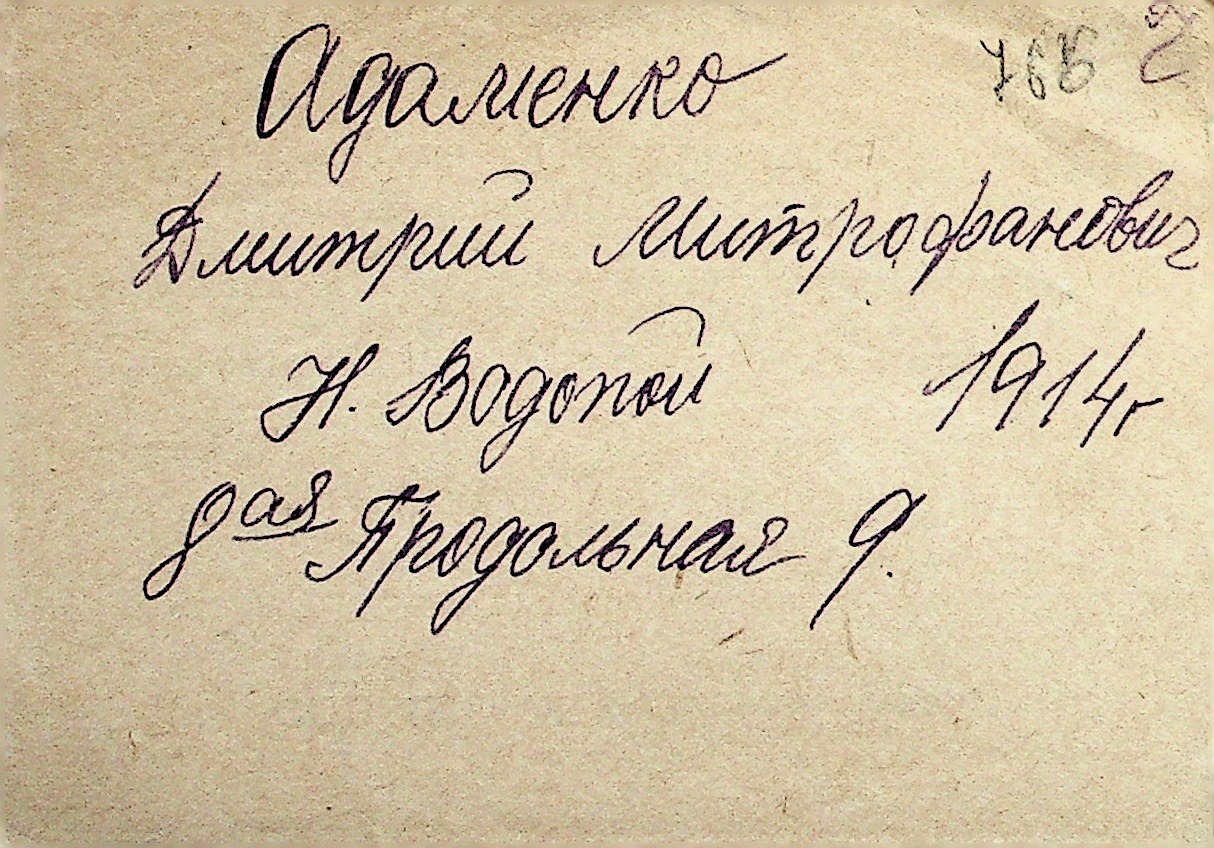 Адаменко
Дмитрий Митрофанович
Н. Водопой 1914г
8ая Продольная 9.